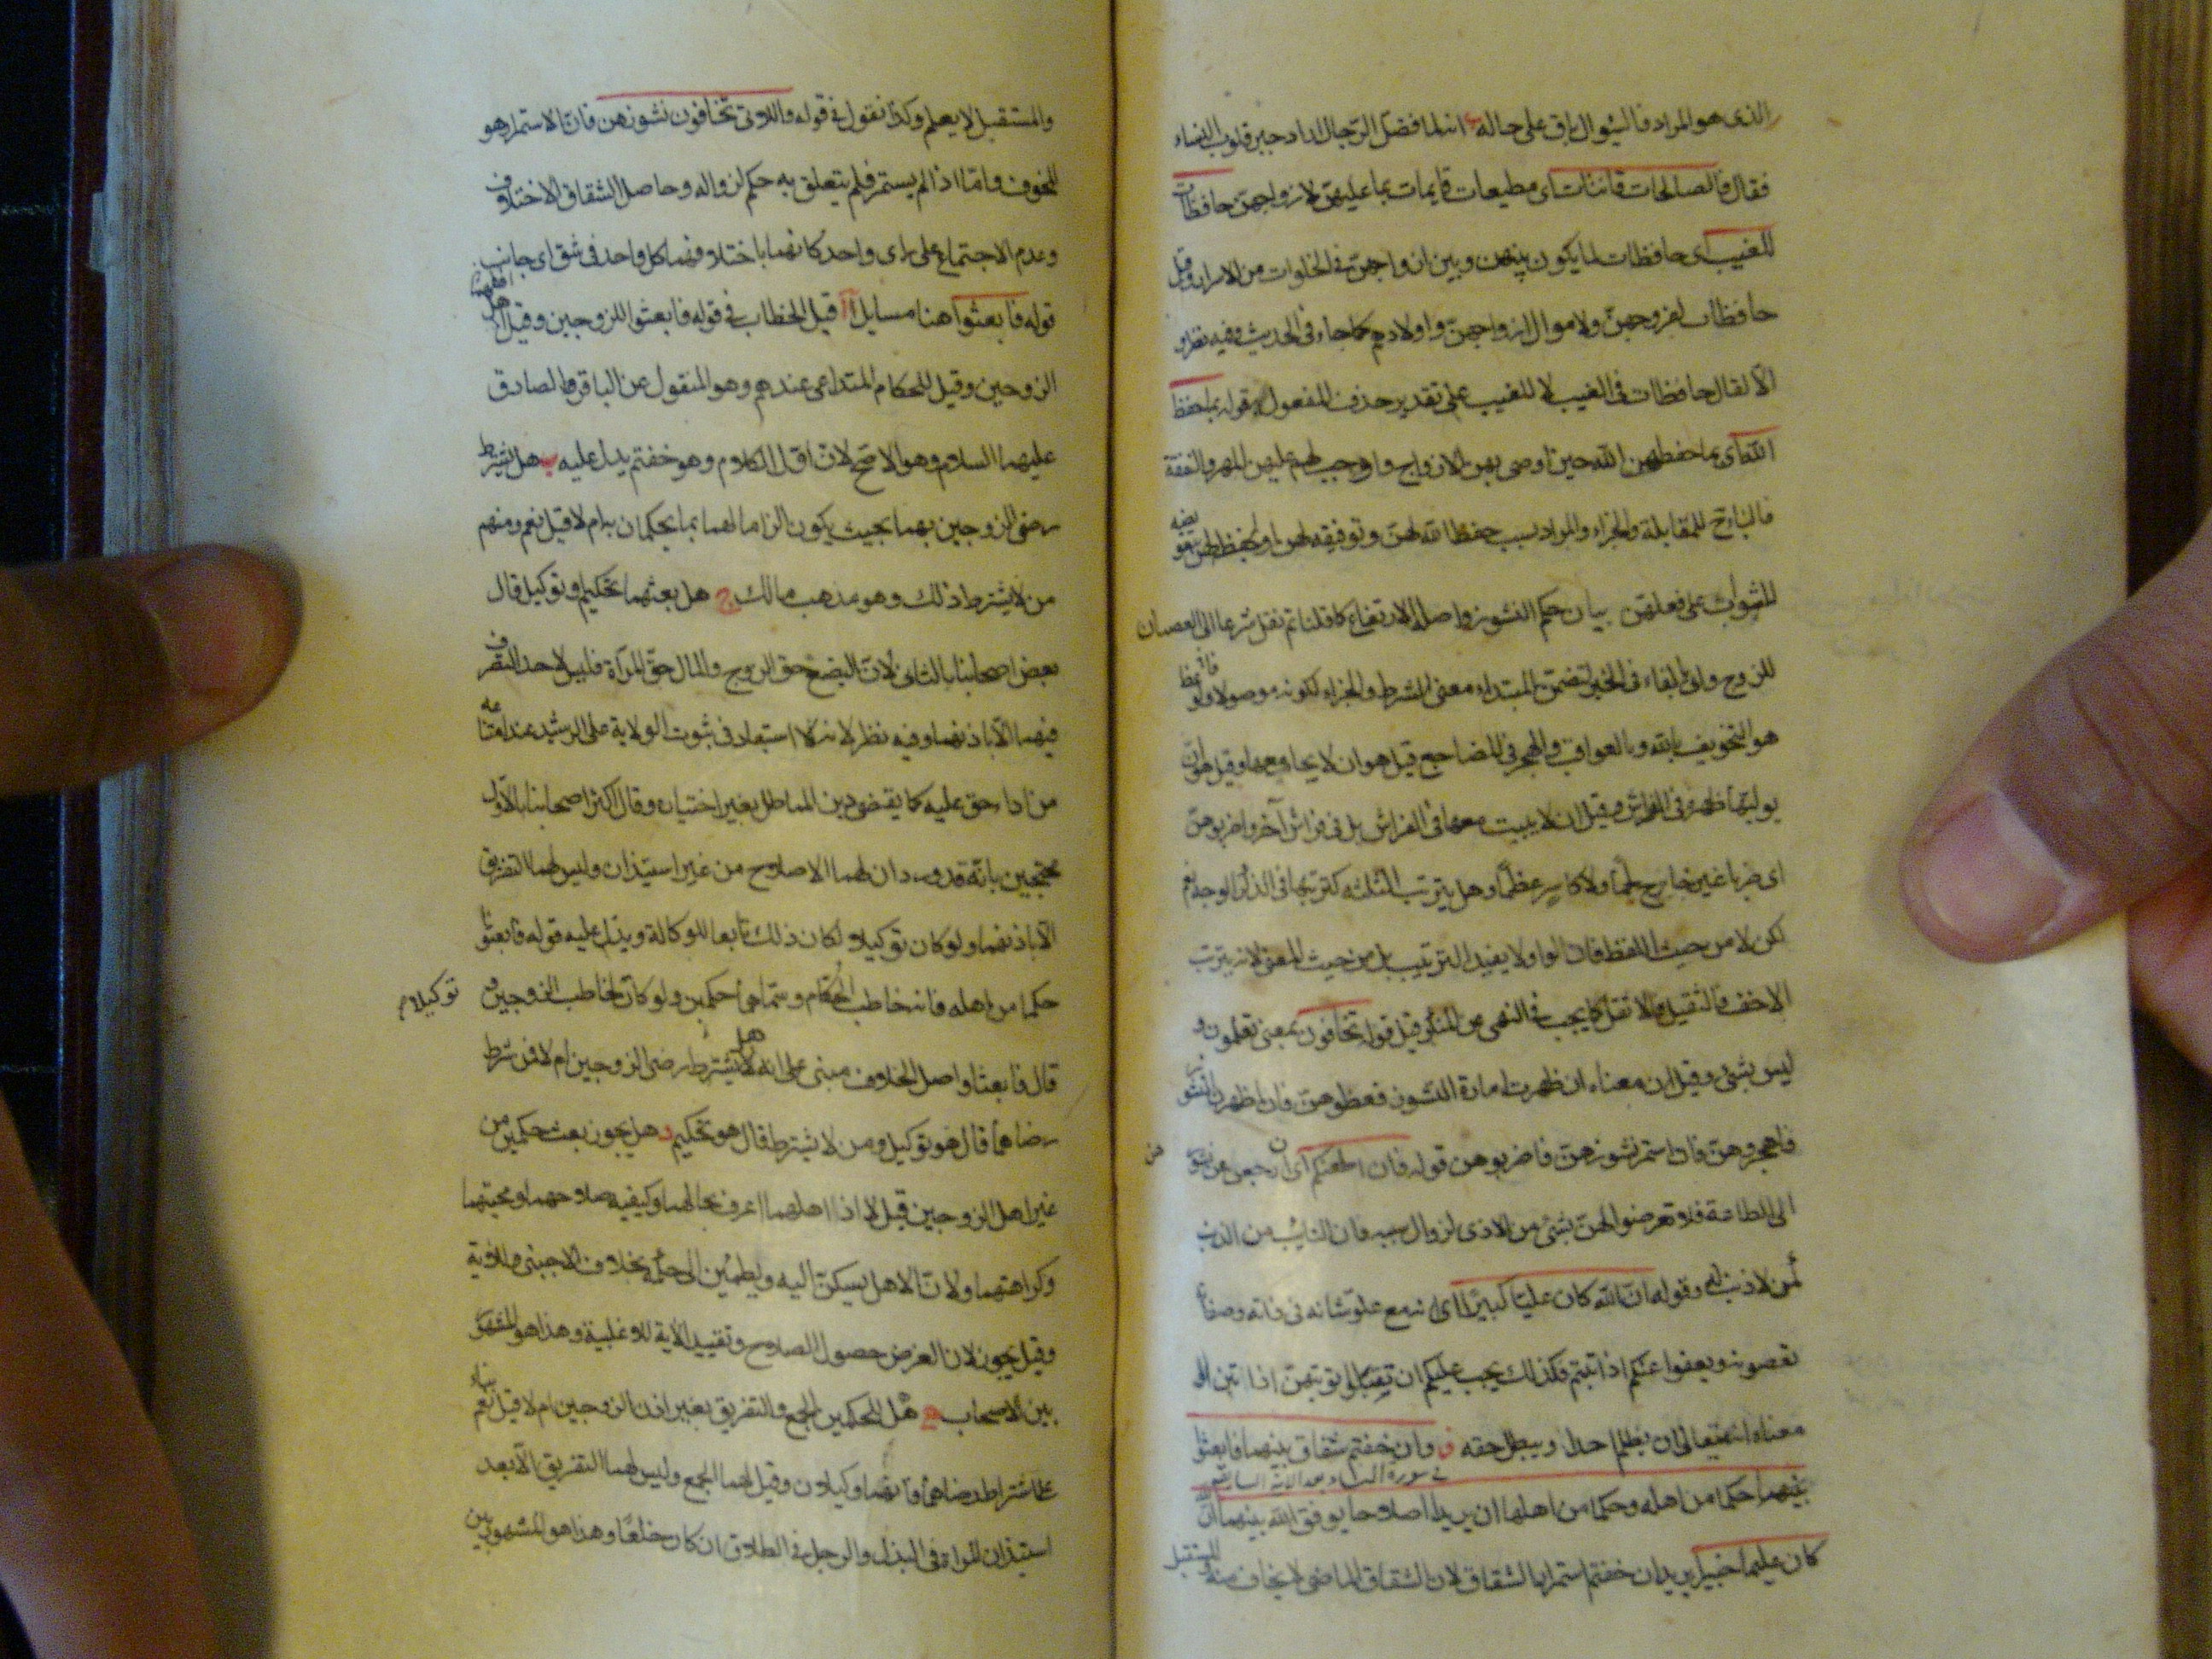 الذى هو المراد فالسؤال باق على حاله انه لما فضل الرجال اراد جبر قلوب النساء
فقال فالصالحات قانتات اى مطيعات قايمات بما عليهن لازواجهن حافظات
للغيب اى حافظات لما يكون بينهن وبين ازواجهن فى الخلوات من الاسرار وقيل
حافظات لفروجهن ولاموال ازواجهن واولادهم كما جاء فى الحديث وفيه نظر و
الا لقال حافظات فى الغيب لا للغيب على تقدير حذف المفعول قوله بما حفظ
الله اى بما حفظهن الله حين اوصى بهن الازواج واوجب لهم عليهن المهر والنفقة
فالباء للمقابلة والجزاء والمراد بسبب حفظ الله لهن وتوفيقه لهن او لحفظ الله لهن
المثوبات على فعلهن بيان حكم النشوز واصله الارتفاع كما قلنا ثم نقل شرعا الى العصيان
للزوج واتى بالفاء فى الخبر لتضمن المبتداء معنى الشرط والجزاء لكونه موصولا والوعظ
هو التخويف بالله وبالعواقب والهجر فى المضاجع قيل هو ان لا يجامعها وقيل هو ان
يوليها ظهره فى الفراش وقيل ان لا يبيت معها فى الفراش بل فى فراش آخر واضربوهن
اى ضربا غير جارح لحما ولا كاسر عظما وهل يترتب الثلثه كترتبها فى الذكر الوجه نعم
لكن لا من حيث اللفظ فان الواو لا يفيد الترتيب بل من حيث المعنى لانه يترتب
الاخف فالثقيل والاثقل كما يجب فى النهى عن المنكر وقيل قوله تخافون بمعنى تعلمون و
ليس بشىء وقيل ان معناه ان ظهرت امارة النشوز فعظوهن فان اظهرن النشوز
فاهجروهن فان استمر نشوزهن فاضربوهن قوله فان اطعنكم اى ان رجعن عن نشوزهن
الى الطاعة فلا تعرضوا لهن بشىء من الاذى لزوال سببه فان التايب من الذنب
كمن لا ذنب له وقوله ان الله كان عليا كبيرا اى انه مع علو شانه فى ذاته وصفاته
تعصونه ويعفوا عنكم اذا تبتم فكذلك يجب عليكم ان تقبلوا توبتهن اذا تبن او
معناه انه تعالى ان يظلم احدا ويبطل حقه وان خفتم شقاق بينهما فابعثوا
فى سورة النساء بعد الآية السابقة
حكما من اهله وحكما من اهلها ان يريدا اصلاحا يوفق الله بينهما ان الله
كان عليما خبيرا يريد ان خفتم استمرار الشقاق لان الشقاق الماضى لا يخاف منه والمستقبل
والمستقبل لا يعلم وكذا نقول فى قوله واللاتى تخافون نشوزهن فان الاستمرار هو
المخوف واما اذا لم يستمر فلم يتعلق به حكم لزواله وحاصل الشقاق الاختلاف
وعدم الاجتماع على راى واحد كانهما باختلافهما كل واحد فى شق اى جانب
قوله فابعثوا هنا مسايل آ قيل الخطاب فى قوله فابعثوا للزوجين وقيل لاهل
الزوجين وقيل للحكام المتداعى عندهم وهو المنقول عن الباقر والصادق
عليهما السلام وهو الاصح لان اول الكلام وهو خفتم يدل عليه ب هل يشترط
رضى الزوجين بهما بحيث يكون الزاما لهما بما يحكمان به ام لا قيل نعم ومنهم
من لا يشترط ذلك وهو مذهب مالك ج هل بعثهما تحكيم او توكيل قال
بعض اصحابنا بالثانى لان البضع حق الزوج والمال حق المرأة فليس لاحد التصرف
فيهما الا باذنهما وفيه نظر لانه لا استبعاد فى ثبوت الولاية على الرشيد عند امتناعه
من اداء حق عليه كما يقضى دين المماطل بغير اختياره وقال اكثر اصحابنا بالاول
محتجين بانه قد ورد ان لهما الاصلاح من غير استيذان وليس لهما التفريق
الا باذنهما ولو كان توكيلا لكان ذلك تابعا للوكالة ويدل عليه قوله فابعثوا
حكما من اهله فانه خاطب الحكام وسماهما حكمين ولو كان توكيلا لخاطب الزوجين و
قال فابعثا واصل الخلاف مبنى على انه هل يشترط رضى الزوجين ام لا فمن شرط
رضاهما قال هو توكيل ومن لا يشترط قال هو تحكيم د هل يجوز بعث حكمين من
غير اهل الزوجين قيل لا اذ اهلهما اعرف بحالهما وكيفية صلاحهما ومحبتهما
وكراهتهما ولان الاهل يسكن اليه ويطمئن الى حكمه بخلاف الاجنبى وللاية
وقيل يجوز لان الغرض حصول الصلاح وتقييد الآية للاغلبية وهذا هو المشهور
بين الاصحاب ه هل للحكمين الجمع والتفريق بغير اذن الزوجين ام لا قيل نعم بناء
على اشتراط رضاهما فانهما وكيلان وقيل لهما الجمع وليس لهما التفريق الا بعد
استيذان المراة فى البذل والرجل فى الطلاق ان كان خلعا وهذا هو المشهور بين